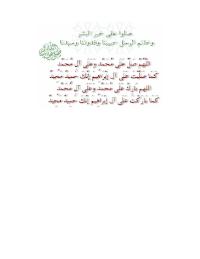 صلوا على خير البشر
وخاتم الرسل حبيبنا وقدوتنا وسيدنا
اللهم صل على محمد وعلى آل محمد
كما صليت على آل إبراهيم إنك حميد مجيد
اللهم بارك على محمد وعلى آل محمد
كما باركت على آل إبراهيم إنك حميد مجيد